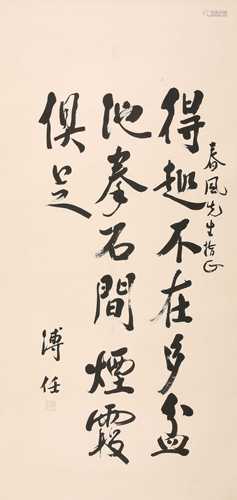 春風先生指正
得趣不在多盆
池拳石間煙霞
俱足
溥任